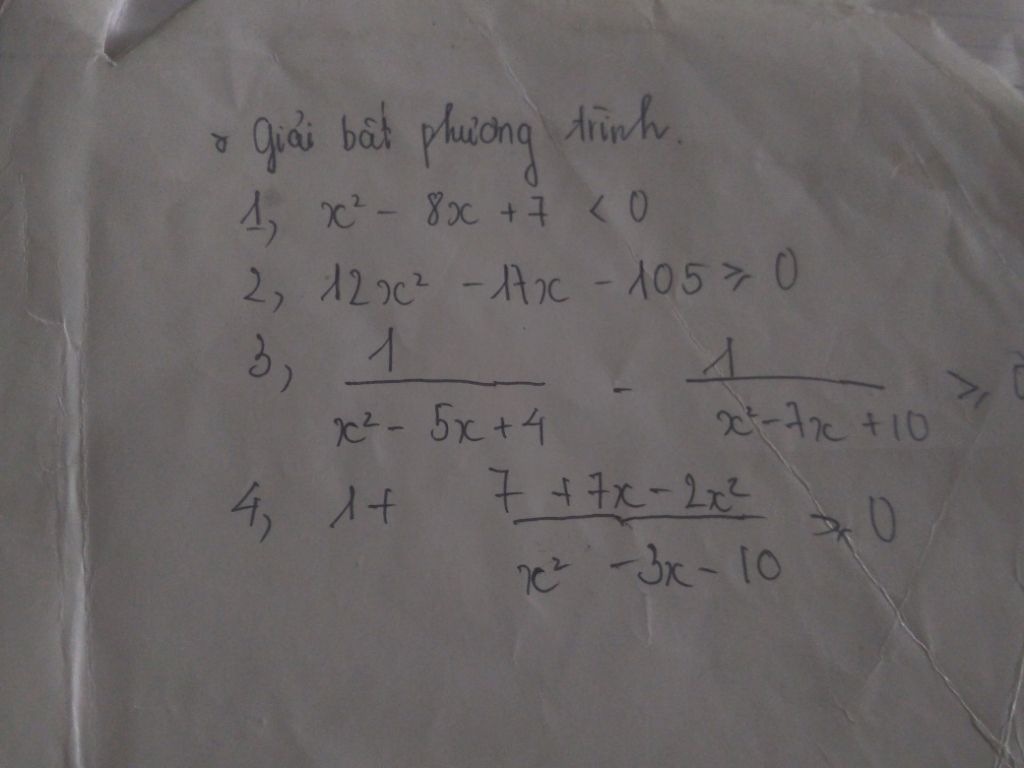 * Giải bất phương trình.
1, x² - 8x + 7 < 0
2, 12x² - 17x - 105 ⩾ 0
3, 1/(x² - 5x + 4) - 1/(x² - 7x + 10) ⩾ 0
4, 1 + (7 + 7x - 2x²)/(x² - 3x - 10) ⩾ 0